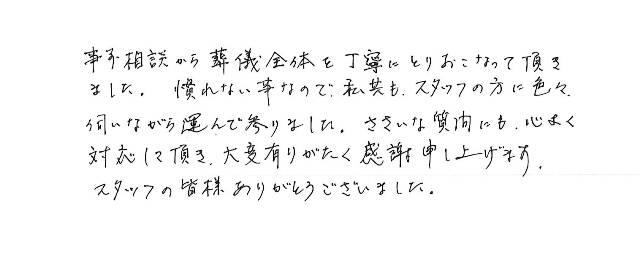 事前相談から葬儀全体を丁寧にとりおこなって頂き
ました。 慣れない事なので、私共も、スタッフの方に色々、
伺いながら運んで参りました。ささいな質問にも、心よく
対応して頂き、大変有りがたく感謝申し上げます。
スタッフの皆様ありがとうございました。